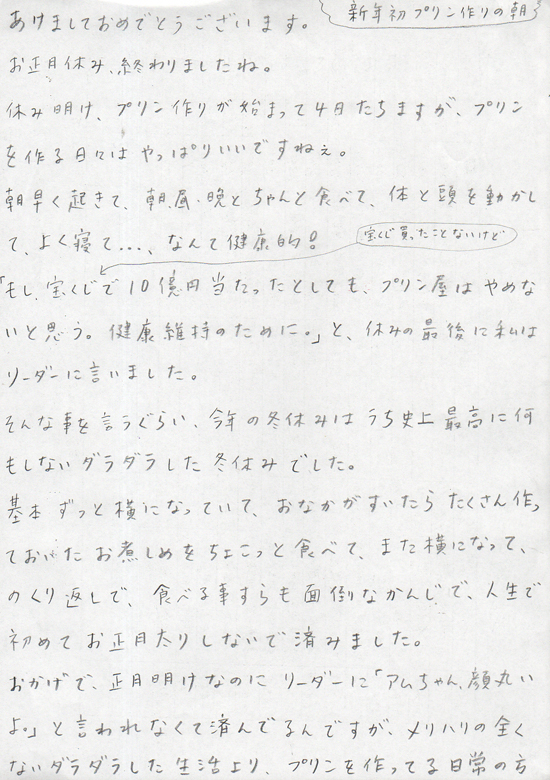 新年初プリン作りの朝
あけましておめでとうございます。
お正月休み、終わりましたね。
休み明け、プリン作りが始まって4日たちますが、プリン
を作る日々はやっぱりいいですねぇ。
朝早く起きて、朝、昼、晩とちゃんと食べて、体と頭を動かし
て、よく寝て…、なんて健康的!
宝くじ買ったことないけど
「もし、宝くじで10億円当たったとしても、プリン屋はやめな
いと思う。健康維持のために。」と、休みの最後に私は
リーダーに言いました。
そんな事を言うぐらい、今年の冬休みはうち史上最高に何
もしないダラダラした冬休みでした。
基本ずっと横になっていて、おなかがすいたらたくさん作っ
ておいたお煮しめをちょこっと食べて、また横になって、
のくり返しで、食べる事すらも面倒なかんじで、人生で
初めてお正月太りしないで済みました。
おかげで、正月明けなのにリーダーに「アムちゃん、顔丸い
よ。」と言われなくて済んでるんですが、メリハリの全く
ないダラダラした生活より、プリンを作ってる日常の方